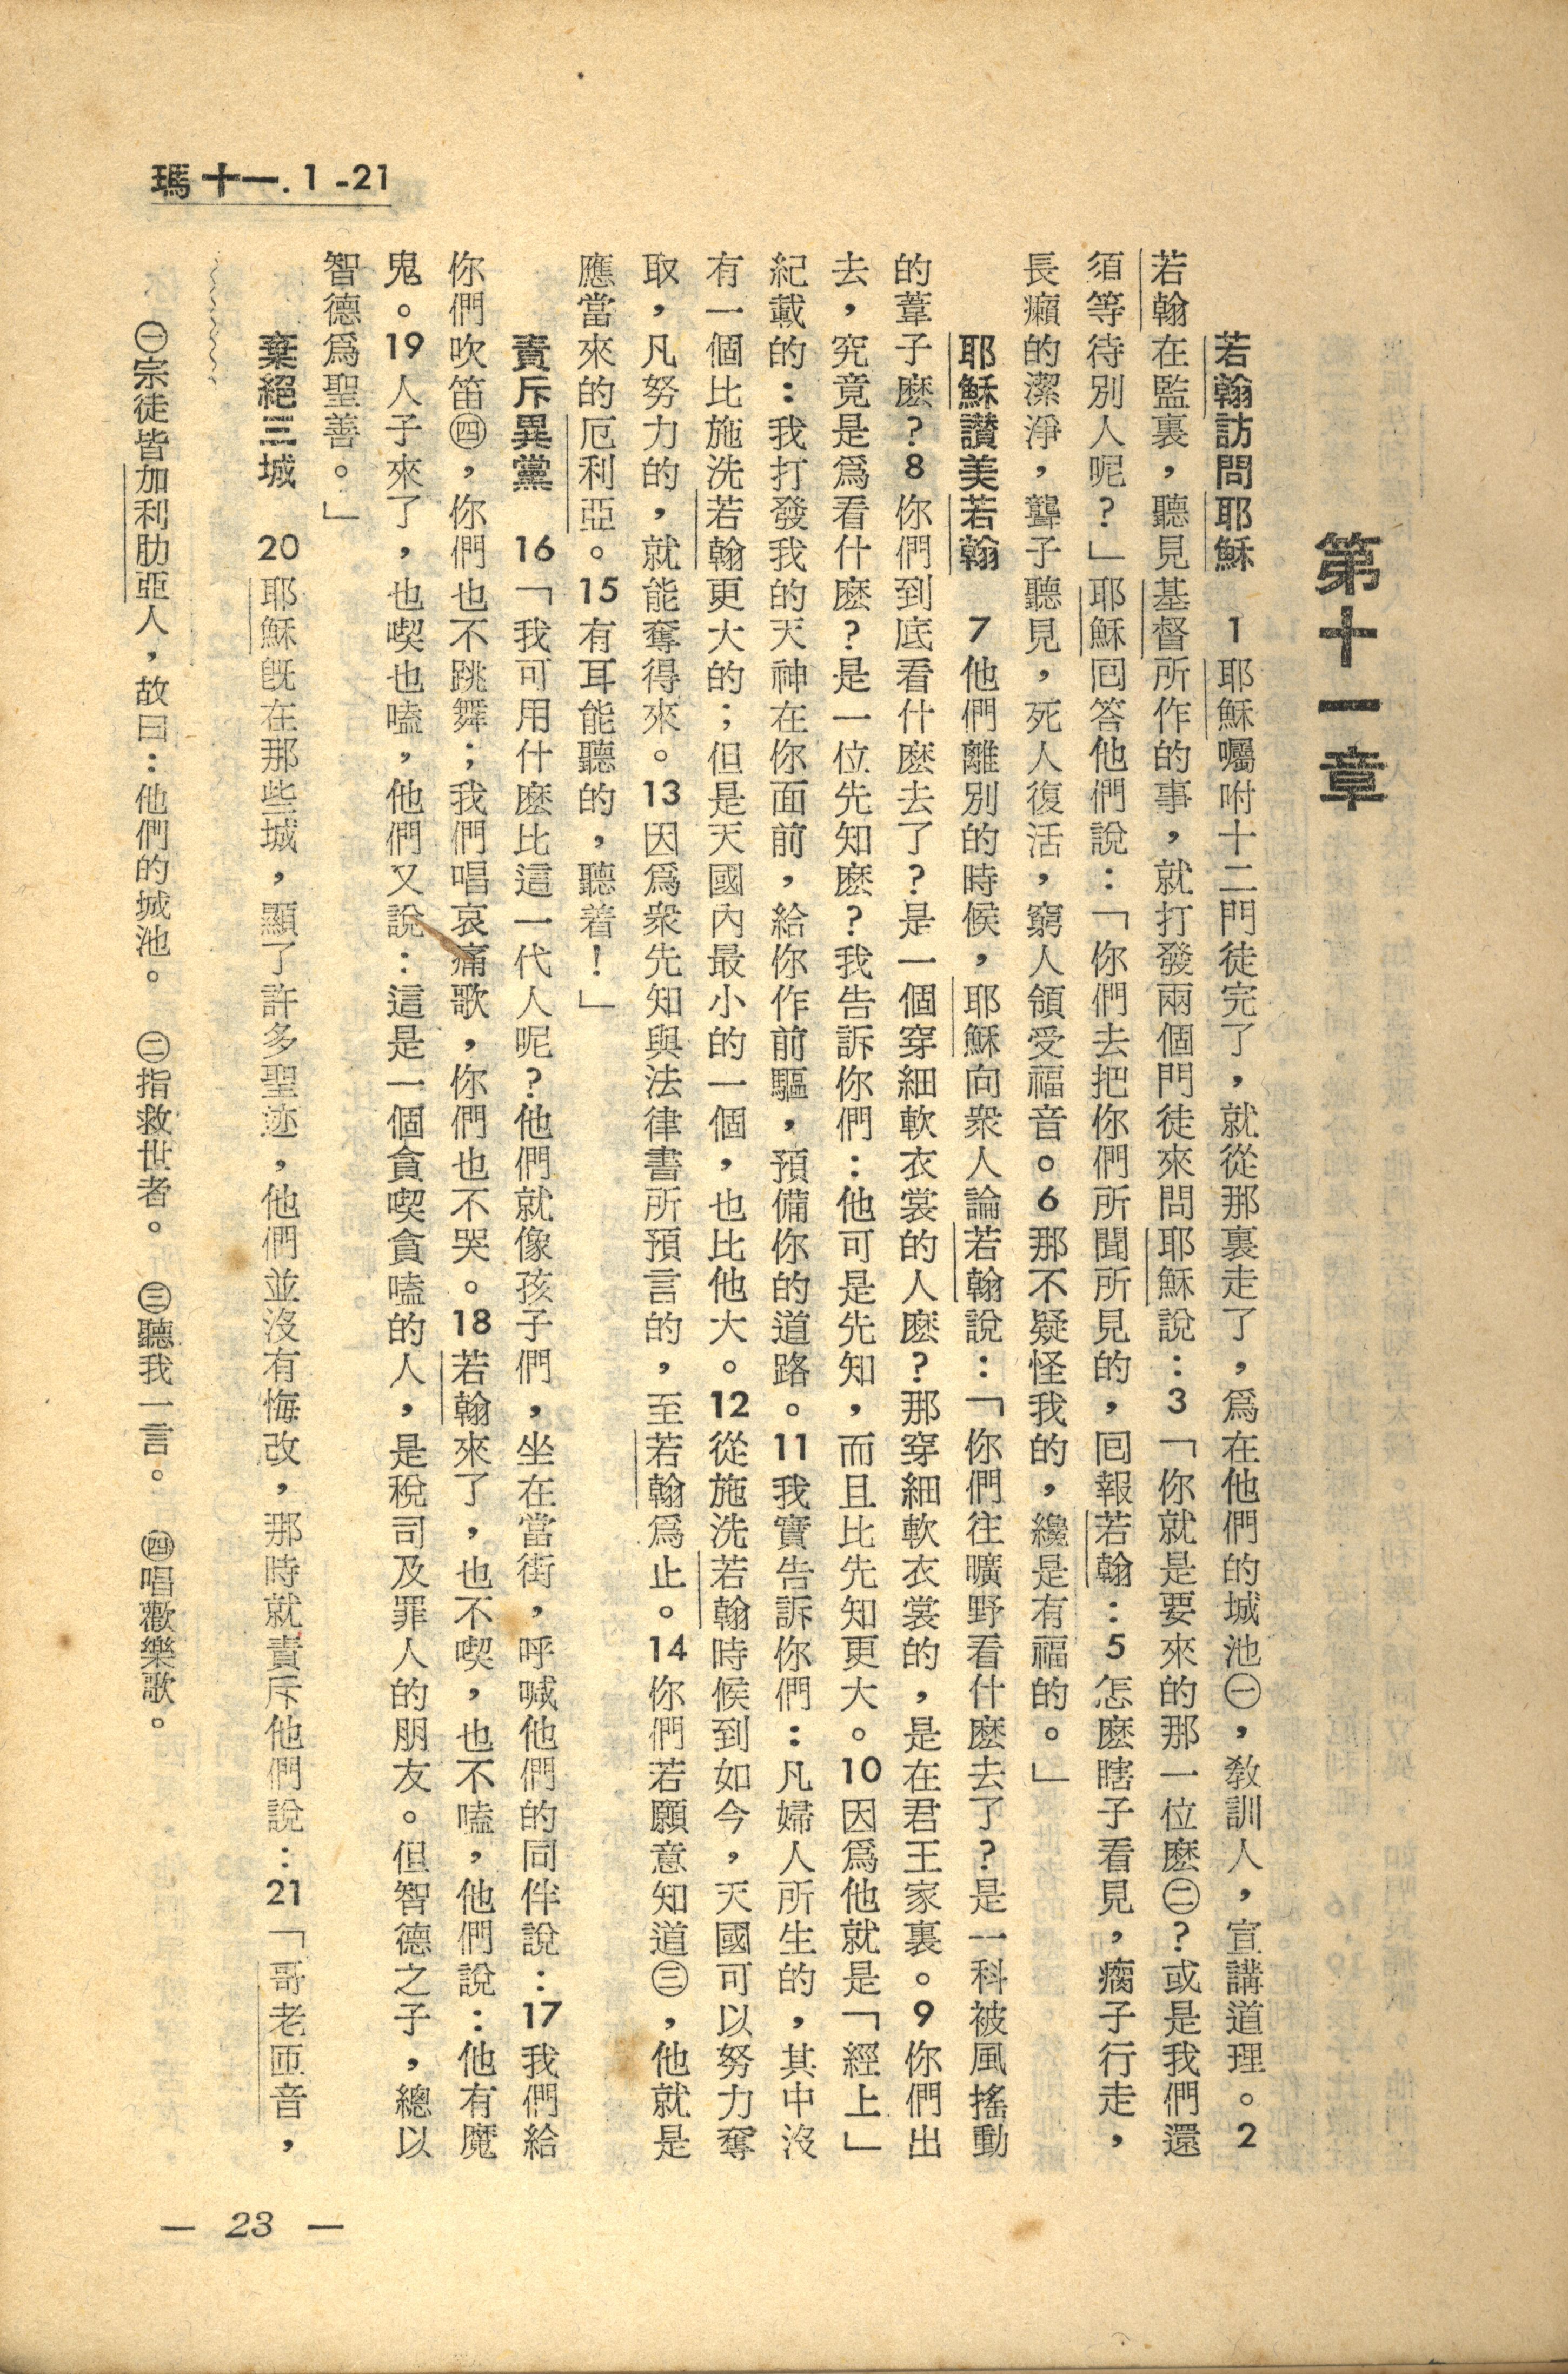 瑪十一.1-21
第十一章
若翰訪問耶穌　1耶穌囑咐十二門徒完了，就從那裏走了，爲在他們的城池㊀，教訓人，宣講道理。2
若翰在監裏，聽見基督所作的事，就打發兩個門徒來問耶穌說：3「你就是要來的那一位麽㊁？或是我們還
須等待別人呢？」耶穌囘答他們說：「你們去把你們所聞所見的，囘報若翰：5怎麽瞎子看見，瘸子行走，
長癩的潔淨，聾子聽見，死人復活，窮人領受福音。6那不疑怪我的，纔是有福的。」
耶穌讚美若翰　7他們離別的時候，耶穌向衆人論若翰說：「你們往曠野看什麽去了？是一科被風搖動
的葦子麽？8你們到底看什麽去了？是一個穿細軟衣裳的人麽？那穿細軟衣裳的，是在君王家裏。9你們出
去，究竟是爲看什麽？是一位先知麽？我告訴你們：他可是先知，而且比先知更大。10因爲他就是「經上」
紀載的：我打發我的天神在你面前，給你作前驅，預備你的道路。11我實告訴你們：凡婦人所生的，其中沒
有一個比施洗若翰更大的；但是天國內最小的一個，也比他大。12從施洗若翰時候到如今，天國可以努力奪
取，凡努力的，就能奪得來。13因爲衆先知與法律書所預言的，至若翰爲止。14你們若願意知道㊂，他就是
應當來的厄利亞。15有耳能聽的，聽着！」
責斥異黨　16「我可用什麽比這一代人呢？他們就像孩子們，坐在當街，呼喊他們的同伴說：17我們給
你們吹笛㊃，你們也不跳舞；我們唱哀痛歌，你們也不哭。18若翰來了，也不喫，也不嗑，他們說：他有魔
鬼。19人子來了，也喫也嗑，他們又說：這是一個貪喫貪嗑的人，是稅司及罪人的朋友。但智德之子，總以
智德爲聖善。」
棄絕三城　20耶穌旣在那些城，顯了許多聖迹，他們並沒有悔改，那時就責斥他們說：21「哥老匝音，
㊀宗徒皆加利肋亞人，故曰：他們的城池。　㊁指救世者。　㊂聽我一言。　㊃唱歡樂歌。
— 23 —